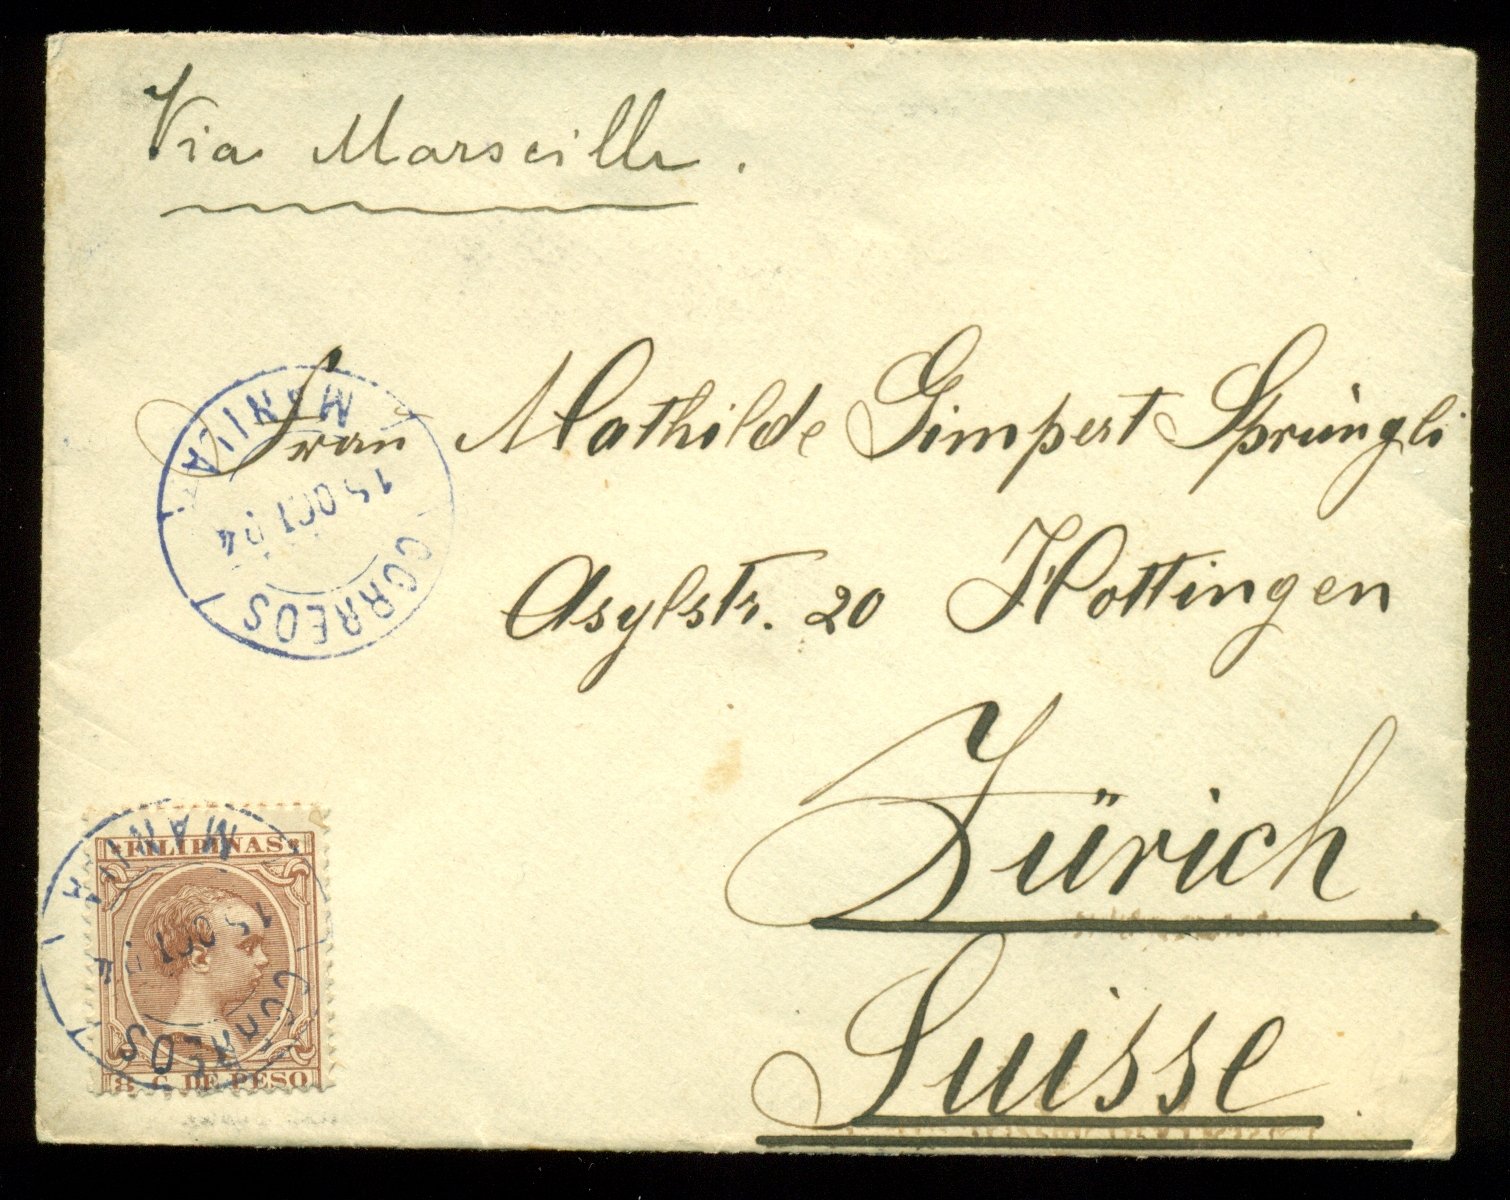 Via Marseille.
Frau Mathilde Gimpert Sprüngli
Asylstr. 20 Hottingen
Zürich.
Suisse.
MANILA
15 OCT 94
CORREOS
FILIPINAS
8 C. DE PESO
MANILA
15 OCT 94
CORREOS